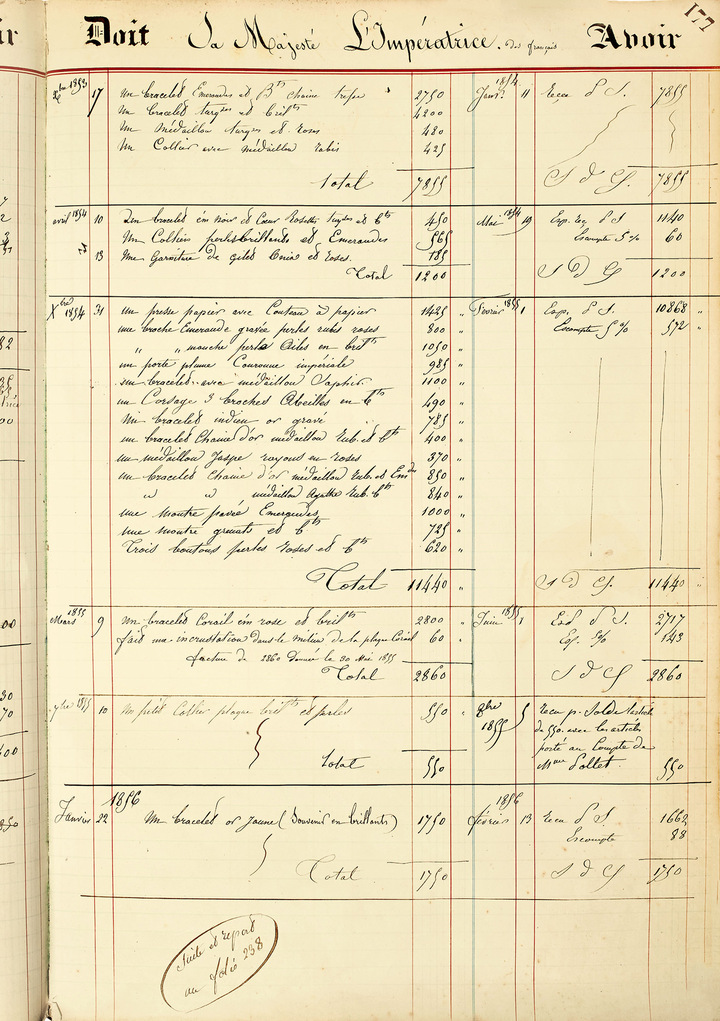 177
Doit Sa Majesté L'Impératrice. des français Avoir
Xbre 1853 17 Un bracelet Emeraudes et Bts chaine 2750
Un bracelet turq es et brilts 4200
Un médaillon turq es et roses 480
Un Collier avec médaillon rubis 425
Total 7855
1854 Janv. 11 Recu P S. 7855
S D C. 7855
avril 1854 10 Un bracelet ém noir et Coeur Rosettes turq es et bts 450
Un Colliers perles brillants et Emeraudes 565
13 Une Garniture de gilet et roses. 185
Total 1200
Mai 1854 19 Esp. P S 1140
Escompte 5% 60
S D C 1200
Xbre 1854 31 un presse papier avec Couteau à papier 1425 "
une broche Emeraude gravée perles rubis roses 800 "
" " mouche perle Ailes en brilts 1050 "
un porte plume Couronne impériale 985 "
un bracelet avec médaillon Saphir 1100 "
un Corsage 3 broches Abeilles en bts 490 "
Un bracelet indien or gravé 785 "
un bracelet Chaine d'or médaillon Rub. et bts 400 "
un médaillon Jaspe rayons en roses 370 "
un bracelet Chaine d'or médaillon Rub. et Emdes 850 "
" " médaillon Agathe Rub. bts 840 "
une montre pavée Emeraudes 1000 "
une montre grenats et bts 725 "
Trois boutons perles roses et bts 620 "
Total 11440 "
Février 1855 1 Esp. P S. 10868 "
Escompte 5% 572 "
S D C. 11440 "
Mars 1855 9 Un bracelet Corail ém rose et brilts 2800 "
fait une incrustation dans le milieu de la plaque Corail 60 "
facture de 2860 Donnée le 30 Mai 1855
Total 2860
Juin 1855 1 P S. 2717
Esc. 5% 143
S D C 2860
7bre 1855 10 Un petit Collier plaque brilts et perles 550 "
Total 550
8bre 1855 5 Recu p. Solde l'article
de 550. avec les articles
porté au Compte de
Mme Pollet. 550
1856
Janvier 22 Un bracelet or Jaune (Souvenir en brillants) 1750
Total 1750
1856
février 13 Recu P S 1662
Escompte 88
S D C 1750
Suite et report
au folio 238